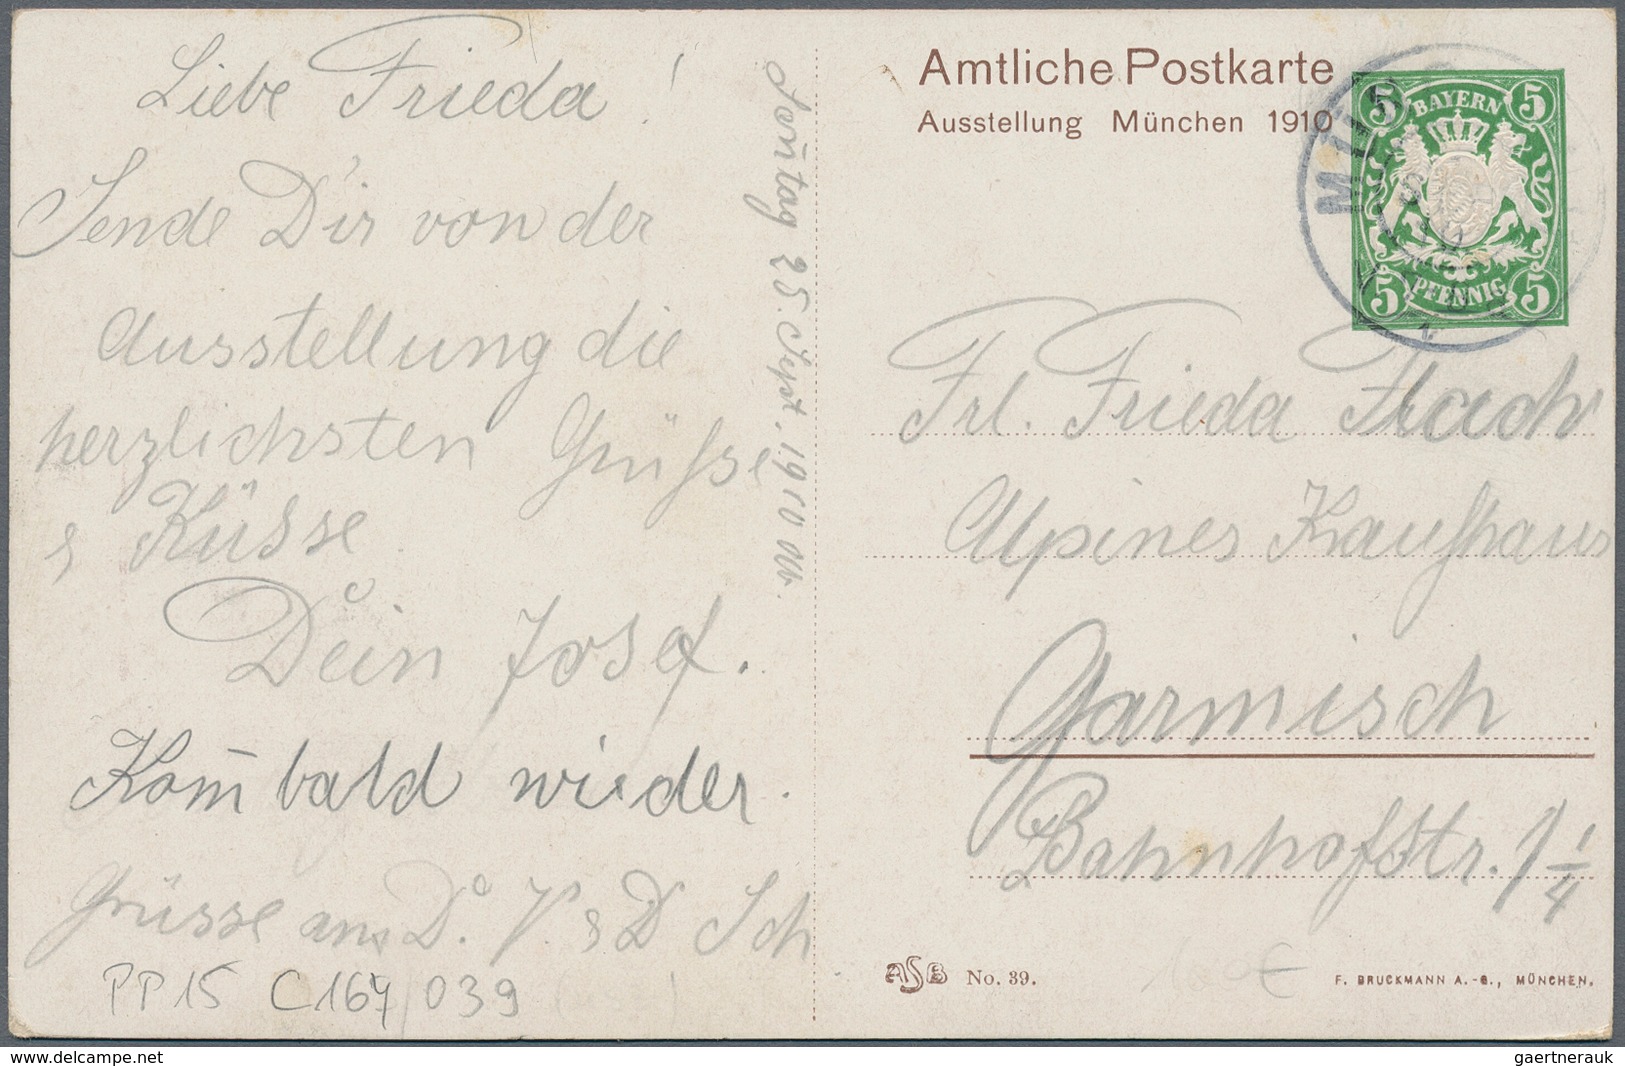 Liebe Frieda!
Sende Dir von der
Ausstellung die
herzlichsten Grüsse
& Küsse
Dein Josef.
Kom̄ bald wieder.
Grüsse an D. V. & D Sch
PP15 C164/039
Son̄tag 25. Sept. 1910
Amtliche Postkarte
Ausstellung München 1910
5 BAYERN 5
5 PFENNIG 5
Frl. Frieda Flach
Alpines Kaufhaus
Garmisch
Bahnhofstr. 1 1/4
ASB No. 39.
F. BRUCKMANN A.-G., MÜNCHEN.
www.delcampe.net
gaertnerauk